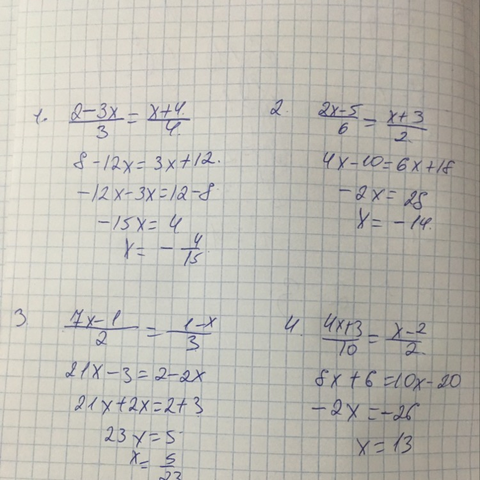 1. (2-3x)/3 = (x+4)/4
8-12x=3x+12.
-12x-3x=12-8
-15x=4
x= -4/15
2. (2x-5)/6 = (x+3)/2
4x-10=6x+18
-2x=28
x=-14.
3. (7x-1)/2 = (1-x)/3
21x-3=2-2x
21x+2x=2+3
23x=5
x=5/23
4. (4x+3)/10 = (x-2)/2
8x+6=10x-20
-2x=-26
x=13